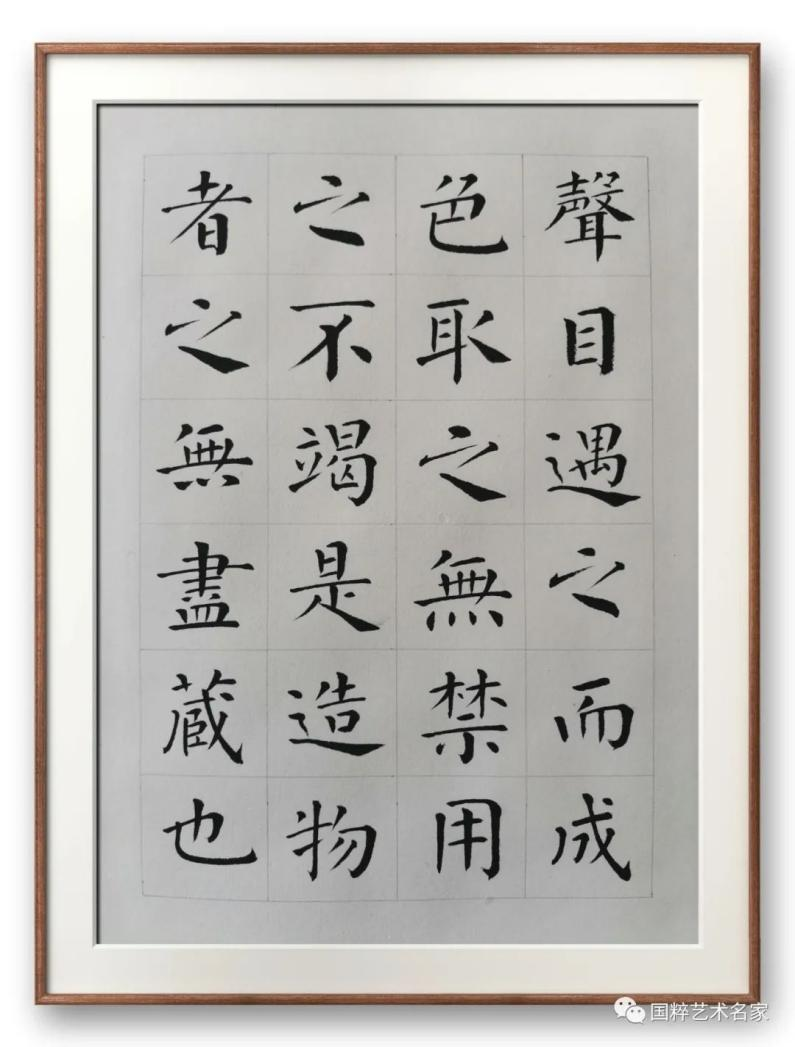 聲目遇之而成
色取之無禁用
之不竭是造物
者之無盡蔵也
国粹艺术名家